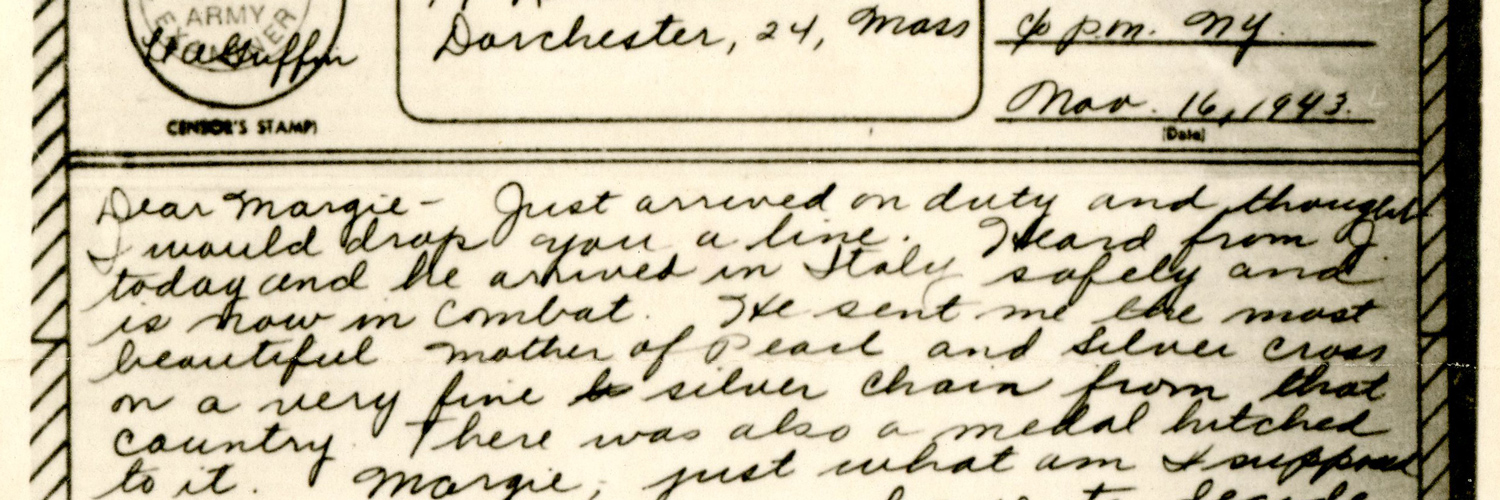 ARMY
EXAMINER
Dorchester, 24, Mass
c/o P.M. NY.
Nov. 16, 1943.
(Date)
CENSOR'S STAMP)
Dear Margie - Just arrived on duty and thought
I would drop you a line. Heard from J.
today and he arrived in Italy safely and
is now in combat. He sent me the most
beautiful mother of Pearl and Silver cross
on a very fine silver chain from that
country. There was also a medal hitched
to it. Margie, just what am I supposed
to